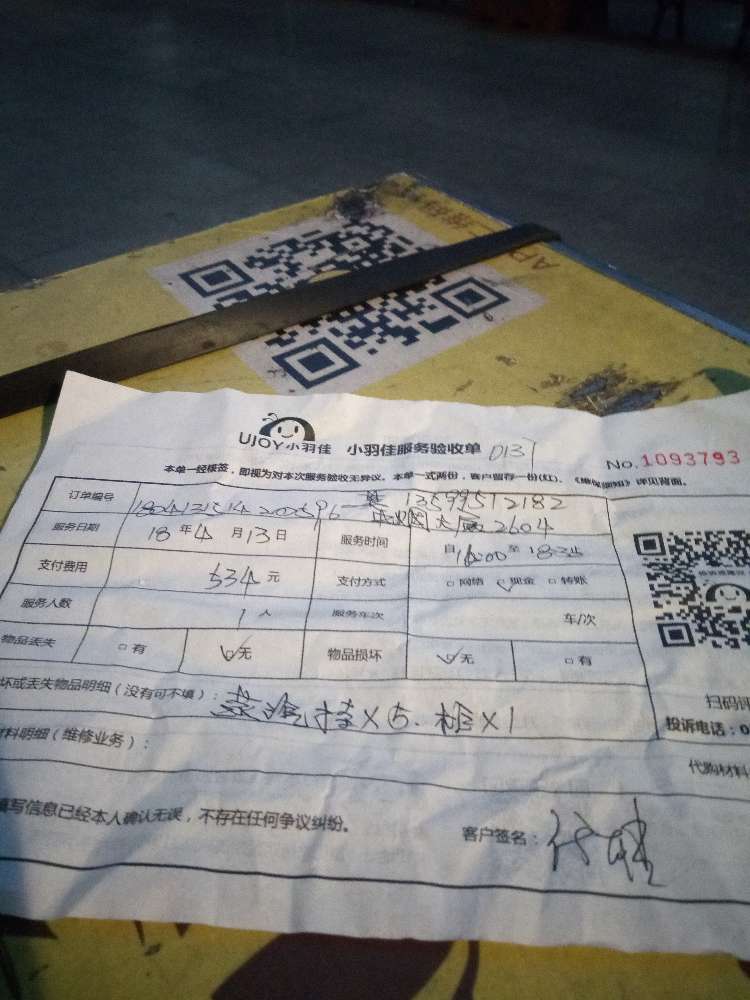 AP
UJOY小羽佳 小羽佳服务验收单 0137
No.1093793
本单一经核签，即视为对本次服务验收无异议。本单一式两份，客户留存一份(红)。《

》详见背面。
订单编号 13599512182
大厦2604
服务日期 18年4月13日 服务时间 自16:00至18:
支付费用 534元 支付方式 □网销 ☑现金 □转账
服务人数 1人 服务车次 车/次
物品丢失 □有 ☑无 物品损坏 ☑无 □有
坏或丢失物品明细（没有可不填）：
×5. ×1
扫码评
投诉电话：0
材料明细（维修业务）： 代购材料
填写信息已经本人确认无误，不存在任何争议纠纷。
客户签名：